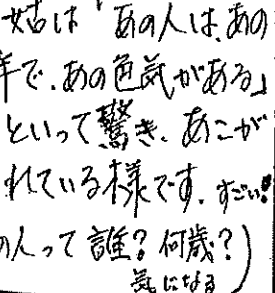 姑は「あの人は、あの
年で、あの色気がある」
といって驚き、あこが
れている様です。すごい!
の人って誰?何歳?)
気になる